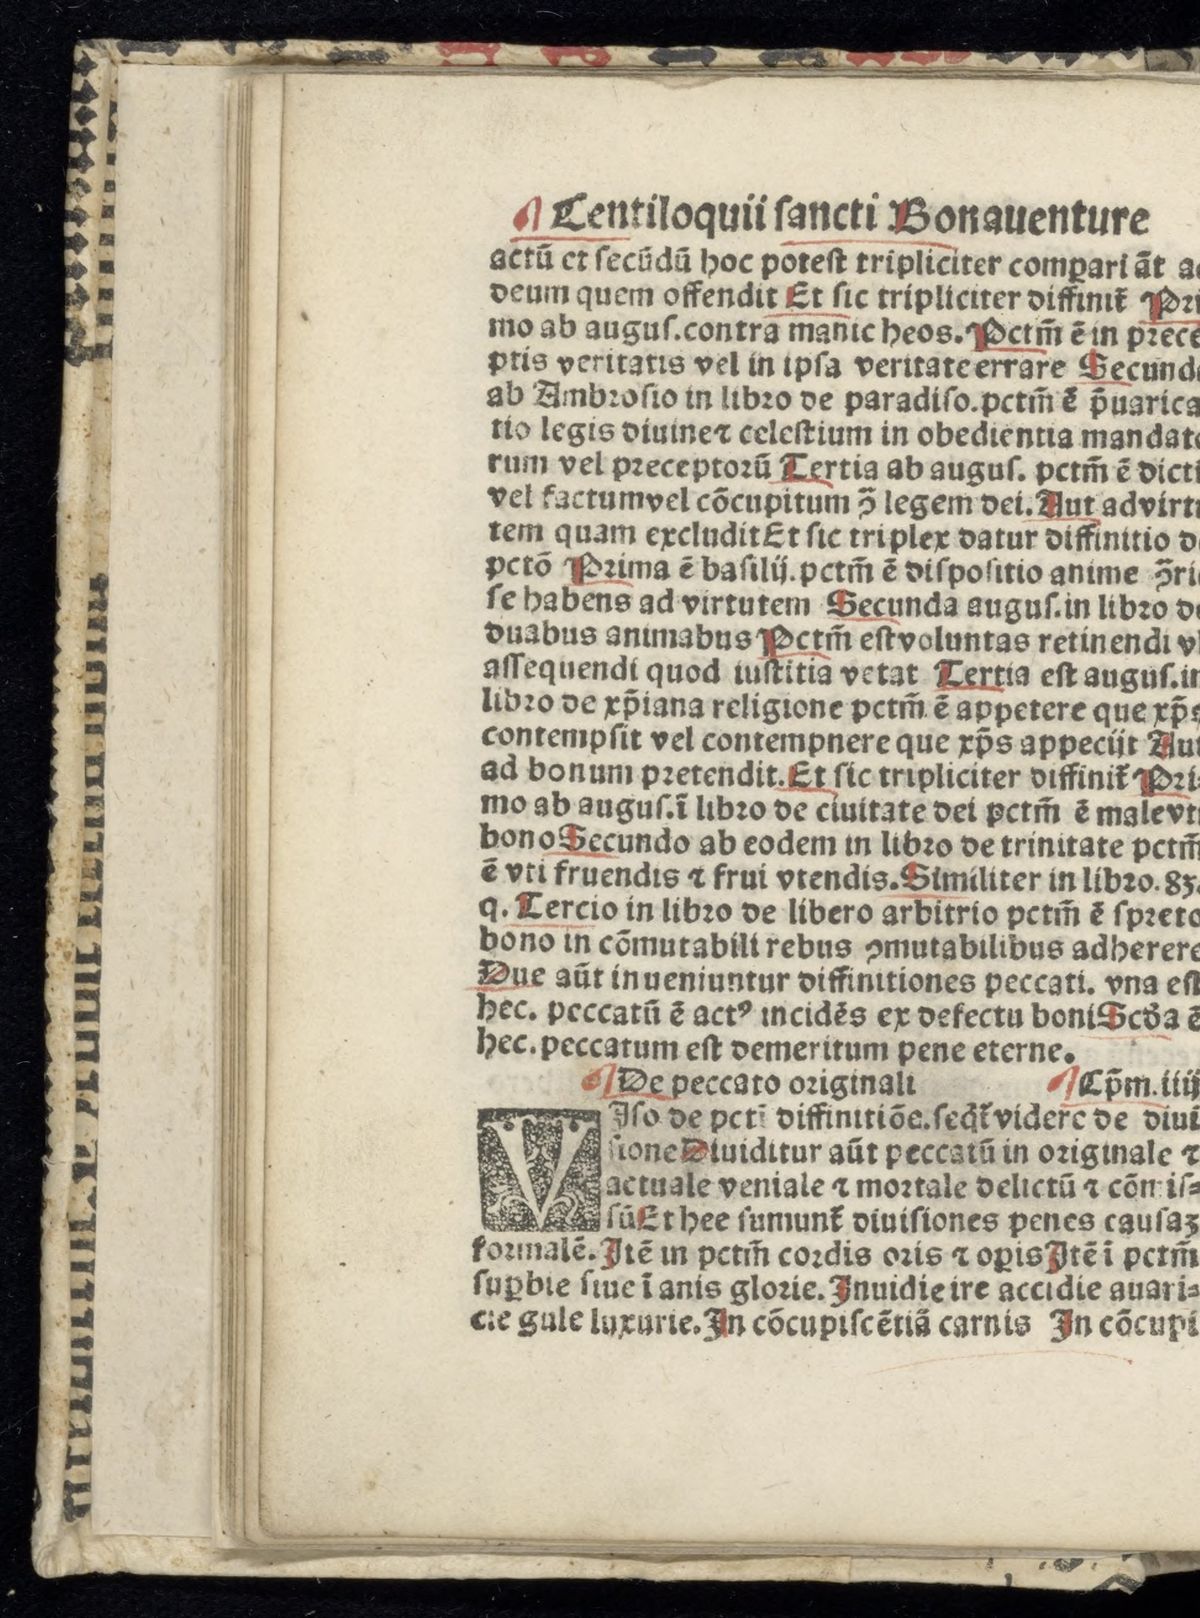 ¶ Centiloquii sancti Bonauenture
actū et secūdū hoc potest tripliciter comꝑari āt ad
deum quem offendit Et sic tripliciter diffinit̄ Pri
mo ab augus.contra manic heos. Pctm̄ ē in prece
ptis veritatis vel in ipsa veritate errare Secund
ab Ambrosio in libro de paradiso.pctm̄ ē p̄uarica
tio legis diuine ⁊ celestium in obedientia mandato
rum vel preceptorū Tertia ab augus. pctm̄ ē dicti
vel factumvel cōcupitum ꝯ̄ legem dei. Aut ad virtu
tem quam excludit Et sic triplex datur diffinitio de
pctō Prima ē basilij.pctm̄ ē dispositio anime ꝯ̄ri
se habens ad virtutem Secunda augus.in libro de
duabus animabus Pctm̄ est voluntas retinendi vl
assequendi quod iustitia vetat Tertia est augus.in
libro de xp̄iana religione pctm̄ ē appetere que xp̄s
contempsit vel contempnere que xp̄s appeciit Aut
ad bonum pretendit. Et sic tripliciter diffinit̄ Pri-
mo ab augus.ī libro de ciuitate dei pctm̄ ē male vti
bono Secundo ab eodem in libro de trinitate pctm̄
ē vti fruendis ⁊ frui vtendis. Similiter in libro.83.
q. Tercio in libro de libero arbitrio pctm̄ ē spreto
bono in cōmutabili rebus ꝯmutabilibus adherere
Due aūt inueniuntur diffinitiones peccati. vna est
hec. peccatū ē actꝰ incidēs ex defectu boni Scd̄a ē
hec.peccatum est demeritum pene eterne.
¶ De peccato originali ¶ Cp̄m.iiij
VIso de pcti diffinitiōe.seqt̄ videre de diui
sione Diuiditur aūt peccatū in originale ⁊
actuale veniale ⁊ mortale delictū ⁊ cōmis-
sū Et hee sumunt̄ diuisiones penes causaꝫ
formalē. Itē in pctm̄ cordis oris ⁊ oꝑis Itē ī pctm̄
suꝑbie siue ī anis glorie. Inuidie ire accidie auari-
cie gule luxurie. In cōcupiscētiā carnis In cōcupi